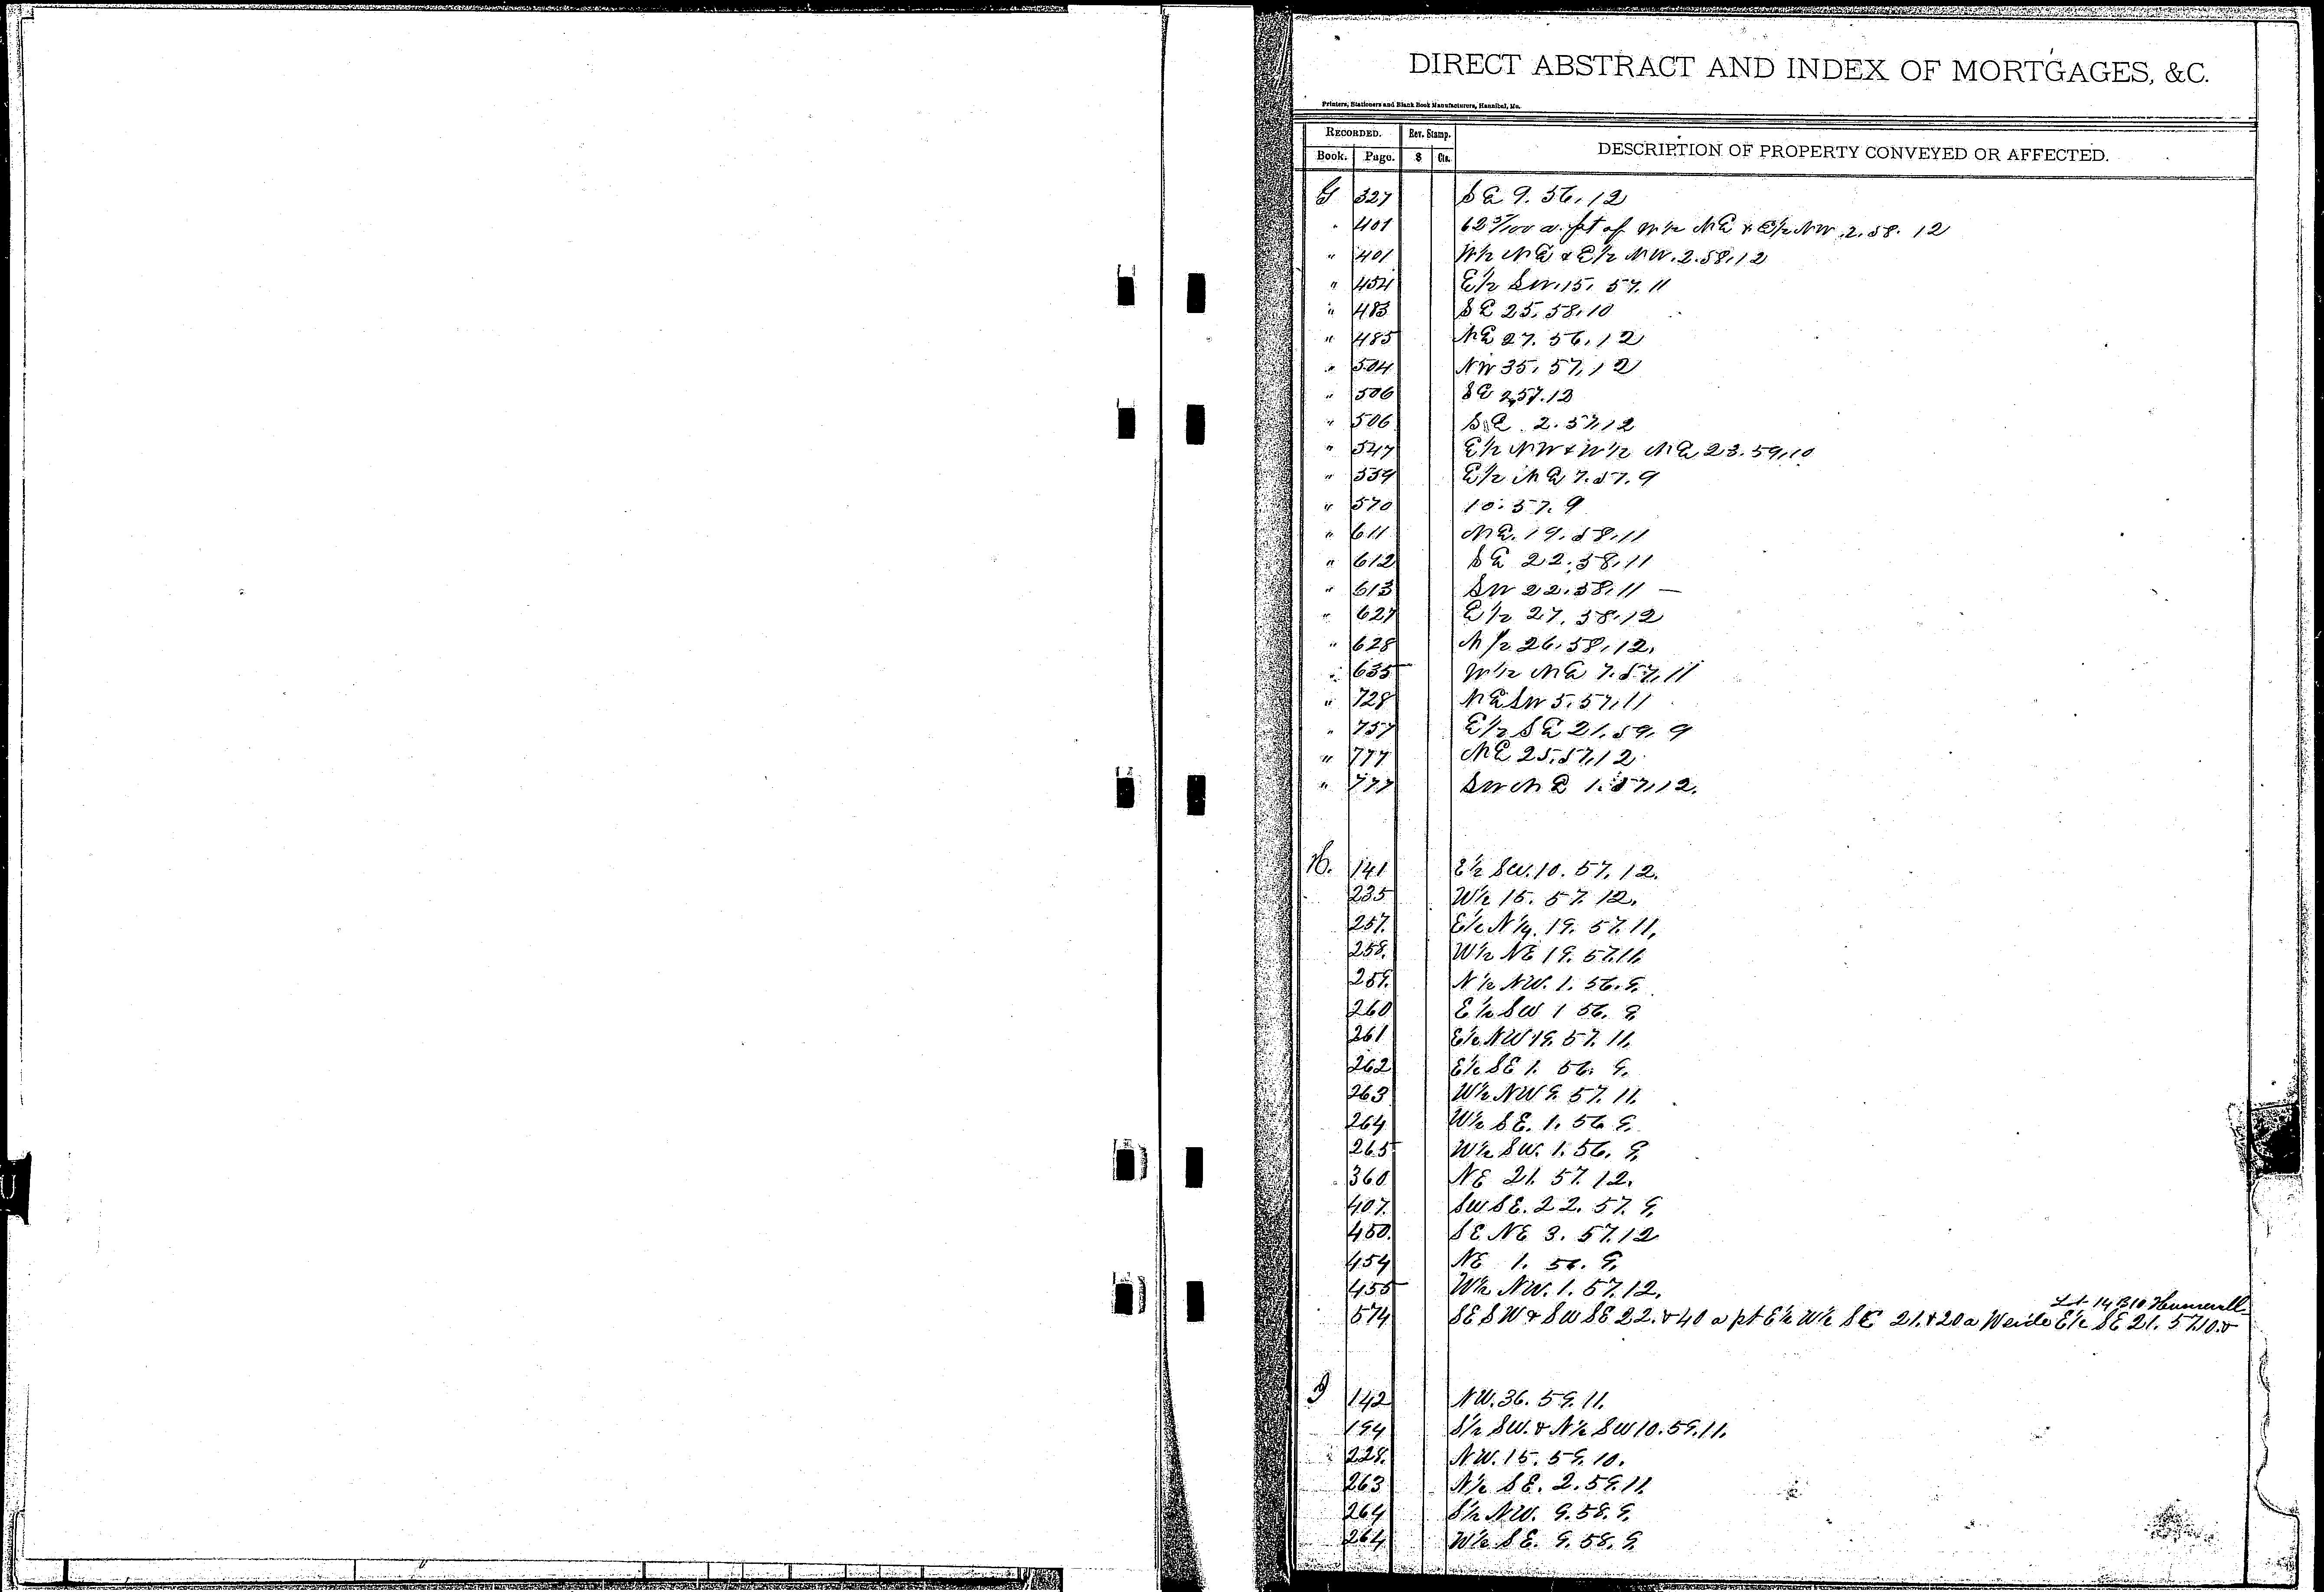 DIRECT ABSTRACT AND INDEX OF MORTGAGES, &C.
Printers, Stationers and Blank Book Manufacturers, Hannibal, Mo.
RECORDED. Rev. Stamp. DESCRIPTION OF PROPERTY CONVEYED OR AFFECTED.
Book. Page. $ Cts.
G 327 SE 9. 56. 12
" 401 62 /100 a. pt of W½ NE & E½ NW. 2. 58. 12
" 401 W½ NE & E½ NW. 2. 58. 12
" 454 E½ SW. 15. 57. 11
" 483 SE 25. 58. 10
" 485 NE 27. 56. 12
" 504 NW 35. 57. 12
" 506 SE 2. 57. 12
" 506 SE. 2. 57. 12
" 547 E½ NW & W½ NE 23. 59. 10
" 559 E½ NE 7. 57. 9
" 570 10. 57. 9
" 611 NE. 19. 58. 11
" 612 SE 22. 58. 11
" 613 SW 22. 58. 11 —
" 627 E½ 27. 58. 12
" 628 N½ 26. 58. 12.
" 635 W½ NE 7. 57. 11
" 728 NE SW 5. 57. 11
" 757 E½ SE 21. 59. 9
" 777 NE 25. 57. 12
" 777 SW NE 1. 57. 12.
H. 141 E½ SW. 10. 57. 12.
235 W½ 15. 57. 12.
257. E½ 19. 57. 11.
258. W½ NE 19. 57. 11.
259. N½ NW. 1. 56. 9.
260 E½ SW 1 56. 9.
261 E½ NW 19. 57. 11.
262 E½ SE 1. 56. 9.
263 W½ NW 9. 57. 11.
264 W½ SE. 1. 56. 9.
265 W½ SW. 1. 56. 9.
360 NE 21. 57. 12.
407. SW SE. 22. 57. 9.
450. SE NE 3. 57. 12
454 NE 1. 56. 9.
455 W½ NW. 1. 57. 12.
Lt 14 B10 Hunnewell
574 SE SW & SW SE 22. & 40 a pt E½ W½ SE 21. & 20 a W side E½ SE 21. 57. 10. &
I 142 NW. 36. 59. 11.
194 S½ SW. & N½ SW 10. 59. 11.
228. NW. 15. 59. 10.
263 N½ SE. 2. 59. 11.
264 S½ NW. 9. 58. 9.
264 W½ SE. 9. 58. 9.